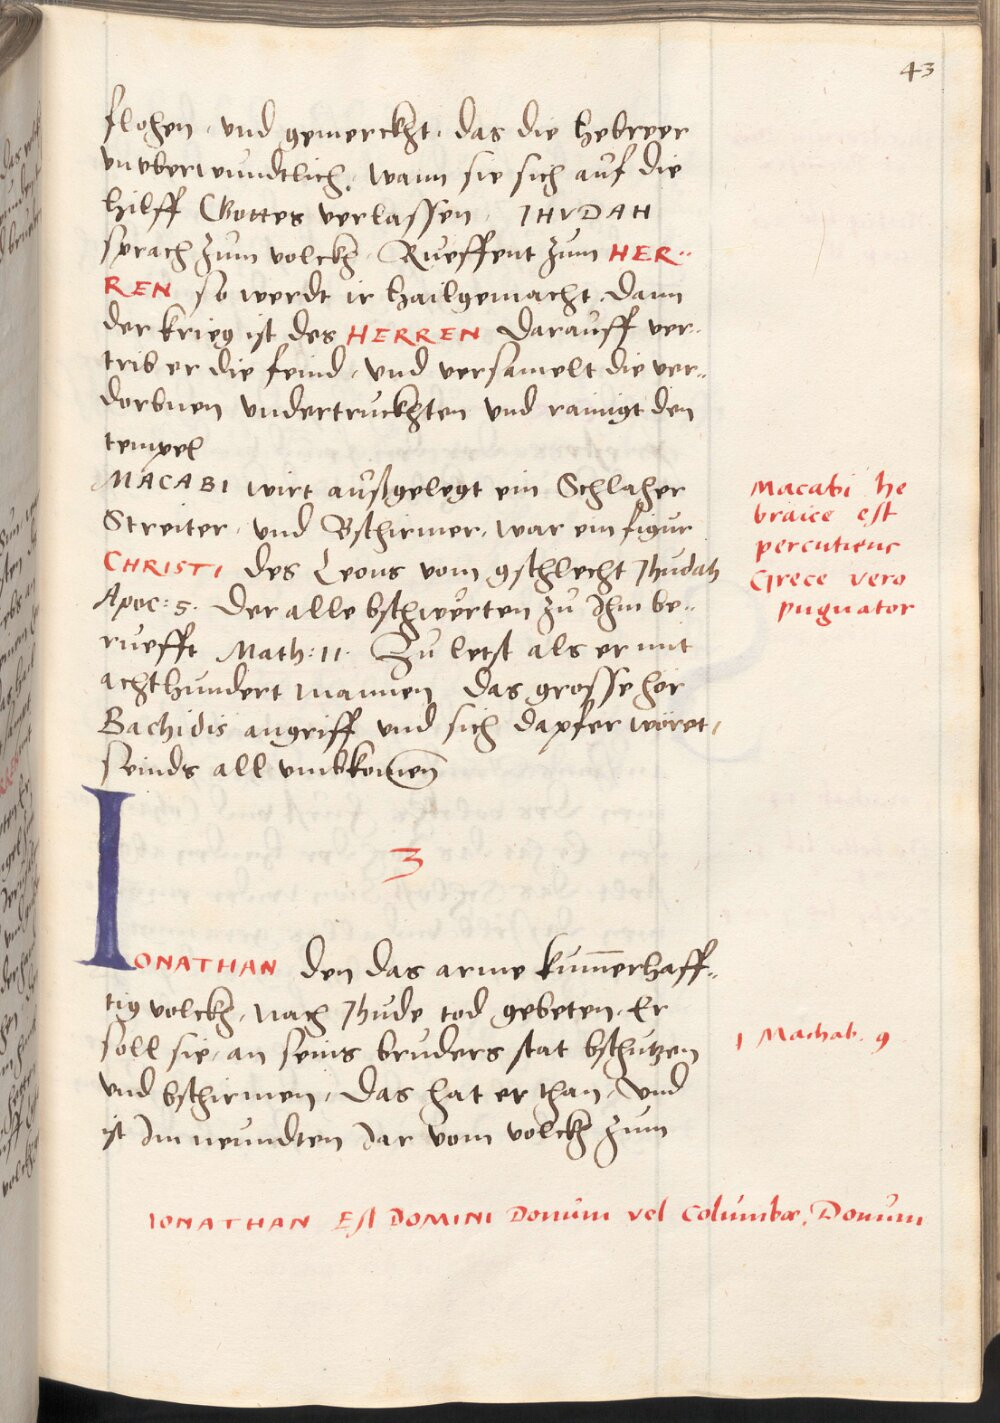 43
flohen, vnd gemerckht, das die Hebreer
vnvberwundtlich, wann sie sich auf die
hilff Gottes verlassen, IHVDAH
sprach zum volckh, Rueffent zum HER-
REN so werdt ir hailgemacht, dann
der krieg ist des HERREN darauff ver-
trib er die feind, vnd versamelt die ver-
dorbnen vndertruckhten vnd rainigt den
tempel
MACABI wirt außgelegt ein Schlaher
Streiter, vnd Bschirmer, war ein figur
CHRISTI des Leons vom gschlecht Jhudah
Apoc: 5. der alle bschwerten zu Ihm be-
ruefft Math: 11. Zu letst als er mit
achthundert mannen das grosse hör
Bachidis angriff vnd sich dapfer wöret,
seinds all vmbkomen
Macabi he
braice est
percutiens
Grece vero
pugnator
3
IONATHAN den das arme kum̄erhaff-
tig volckh, nach Jhude tod gebeten, Er
soll sie, an seins bruders stat bschutzen
vnd bschirmen, das hat er than, vnd
ist Im neundten Jar vom volckh zum
1 Machab. 9
IONATHAN Est DOMINI Donum vel Columbæ, Donum